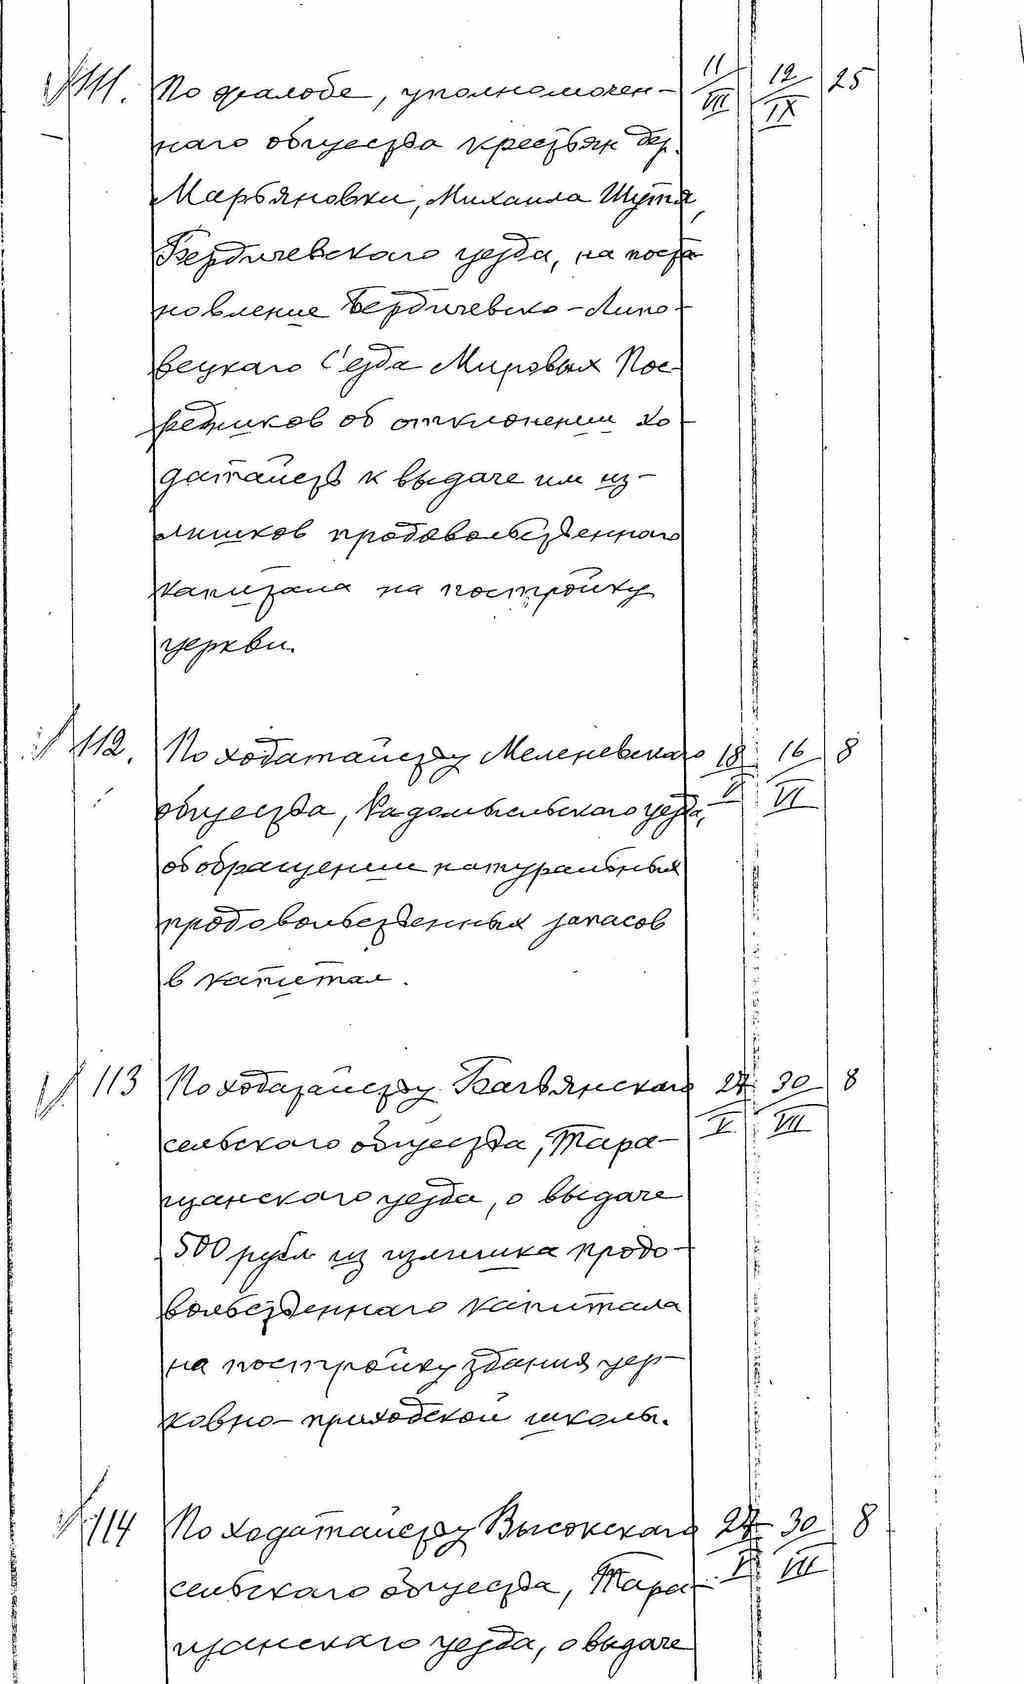 111. По жалобе, уполномочен- 11/VII 12/IX 25
наго общества крестьян дер.
Марьяновки, Михаила Шутя,
Бердичевскаго уезда, на поста-
новление Бердичевско-Липо-
вецкаго С'езда Мировых Пос-
редников об отклонении хо-
датайств к выдаче им из-
лишков продовольственнаго
капитала на постройку
церкви.
112. По ходатайству Меленевскаго 18/V 16/VI 8
общества, Радомысльскаго уезда,
об обращении натуральных
продовольственных запасов
в капитал.
113 По ходатайству Багвянскаго 27/V 30/VII 8
сельскаго общества, Тара-
щанскаго уезда, о выдаче
500 рубл из излишка продо-
вольственнаго капитала
на постройку здания цер-
ковно-приходской школы.
114 По ходатайству Высокскаго 27/V 30/VII 8
сельскаго общества, Тара-
щанскаго уезда, о выдаче